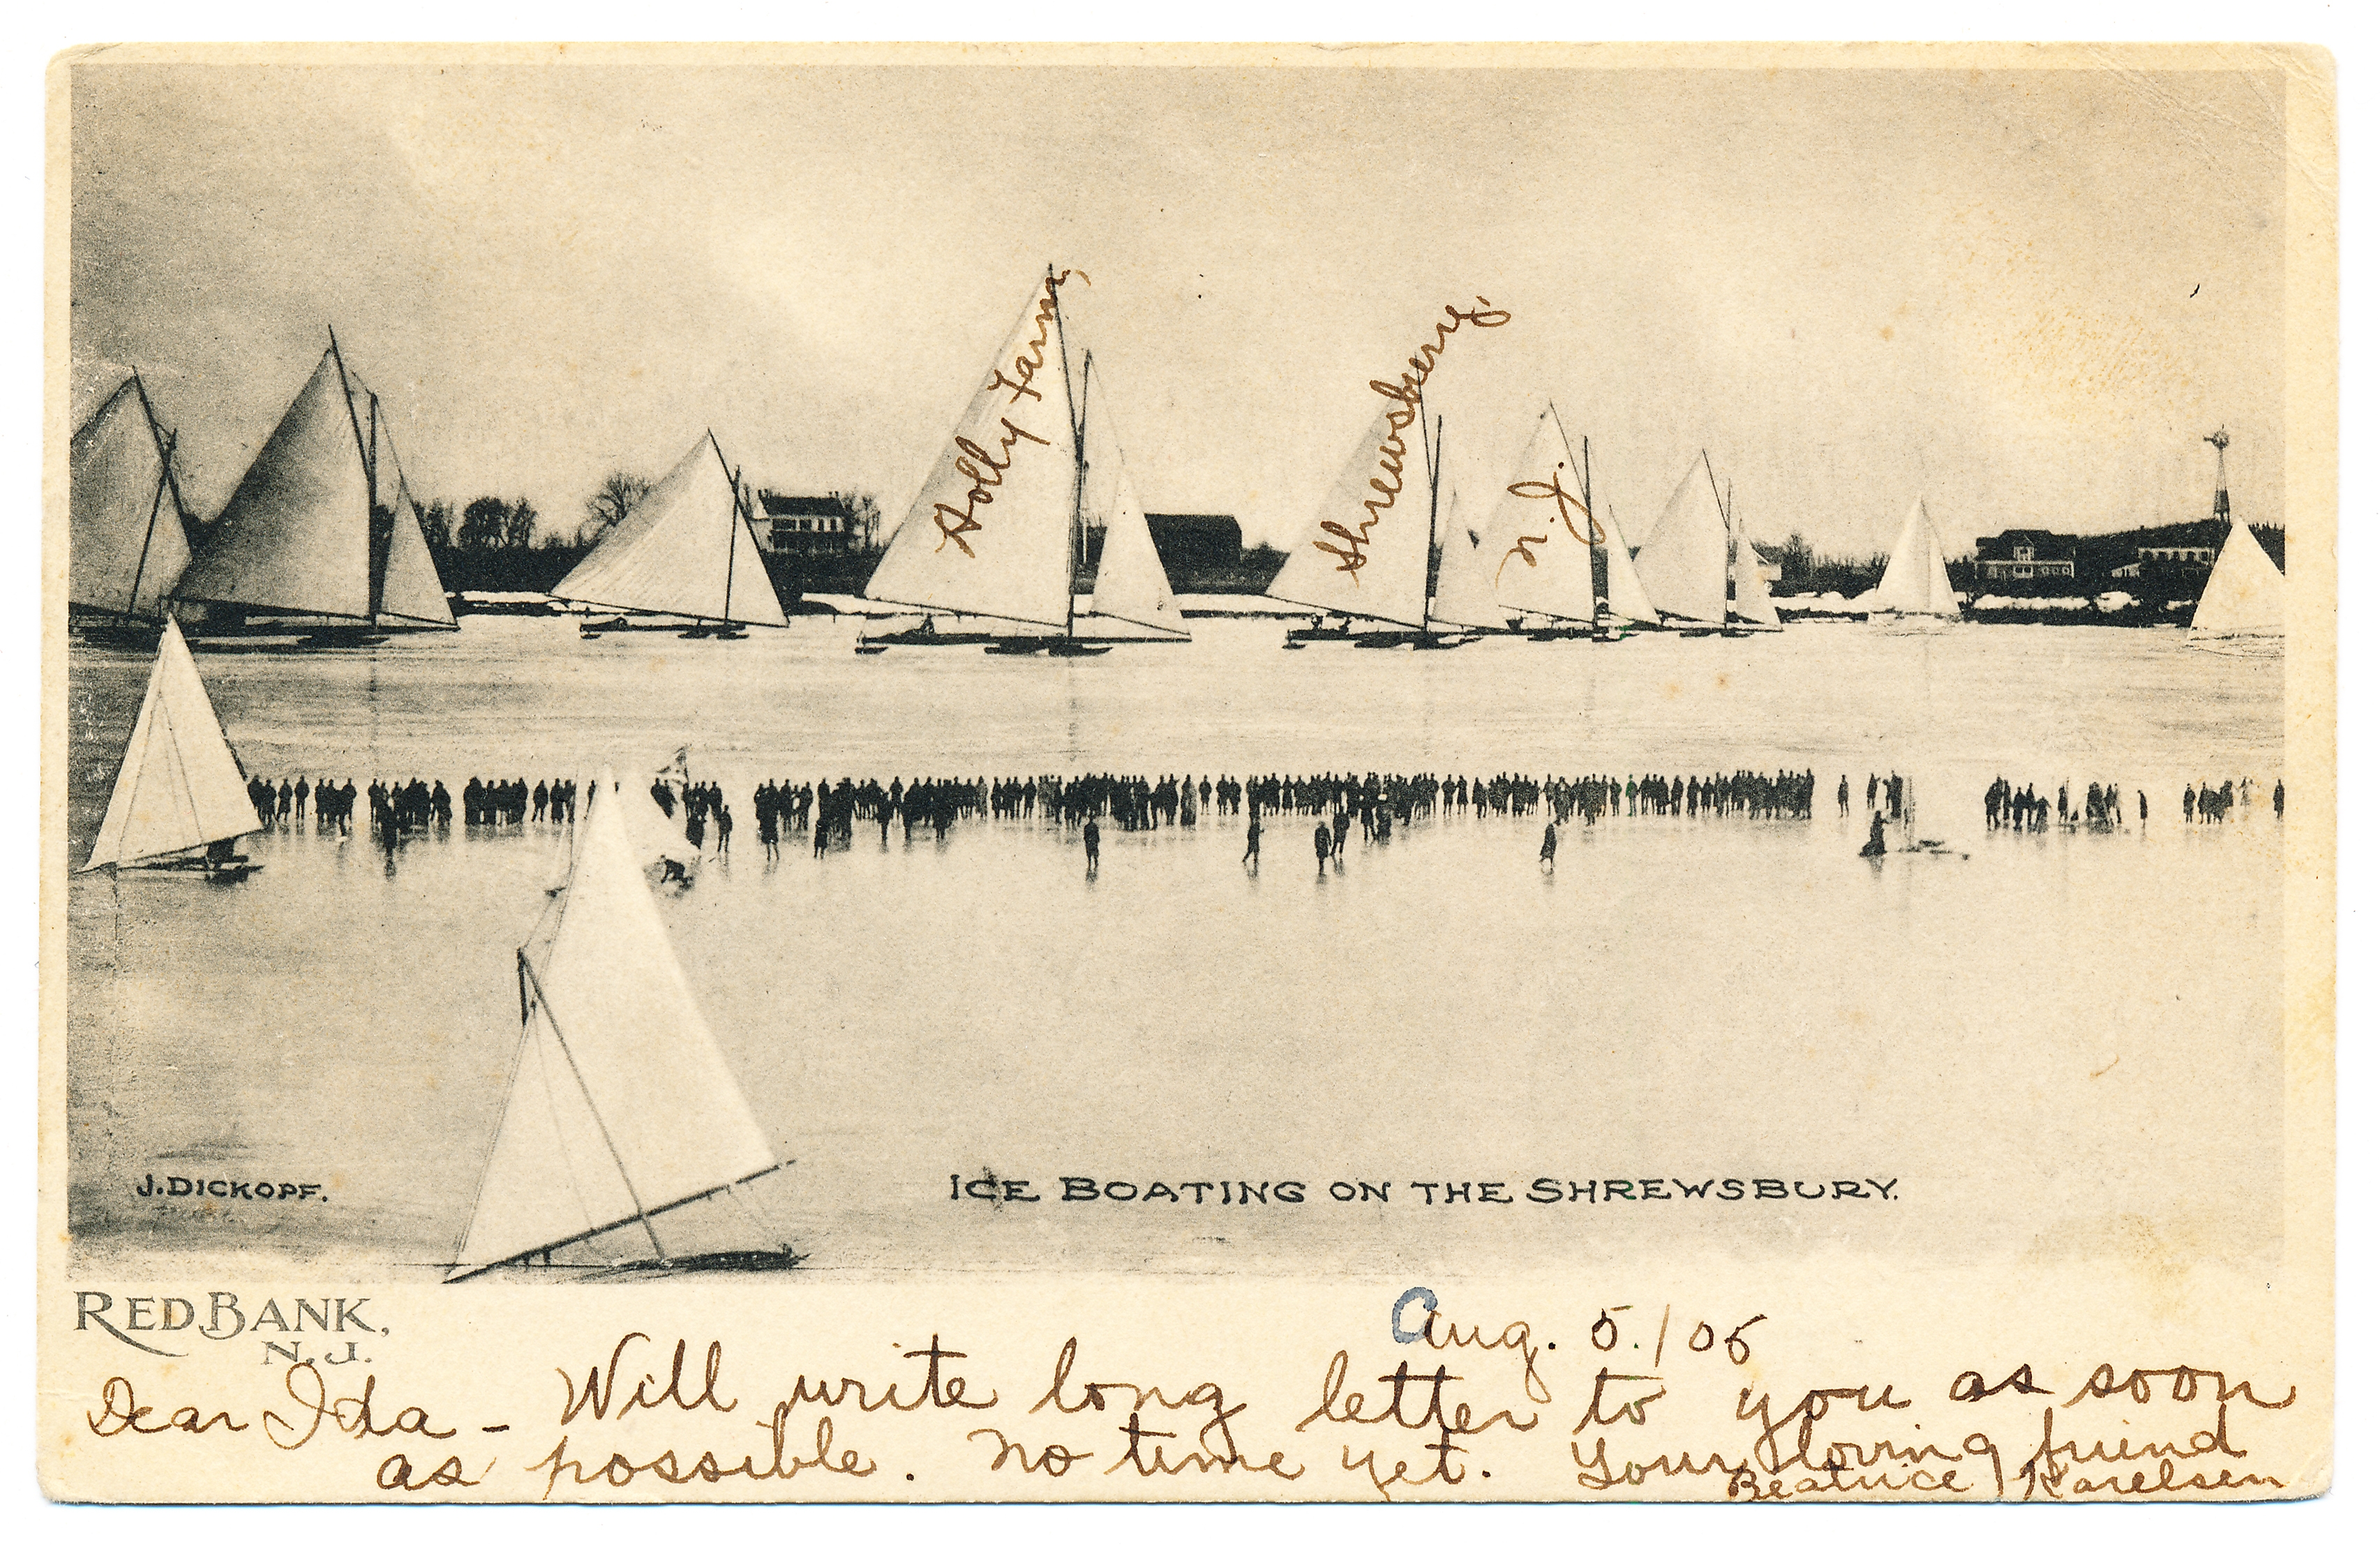 Holly Farm,
Shrewsbury,
N.J.
J. DICKOPF.
ICE BOATING ON THE SHREWSBURY.
RED BANK,
N.J.
Aug. 5./05
Dear Ida - Will write long letter to you as soon
as possible. No time yet. Your loving friend
Beatrice Karelsen